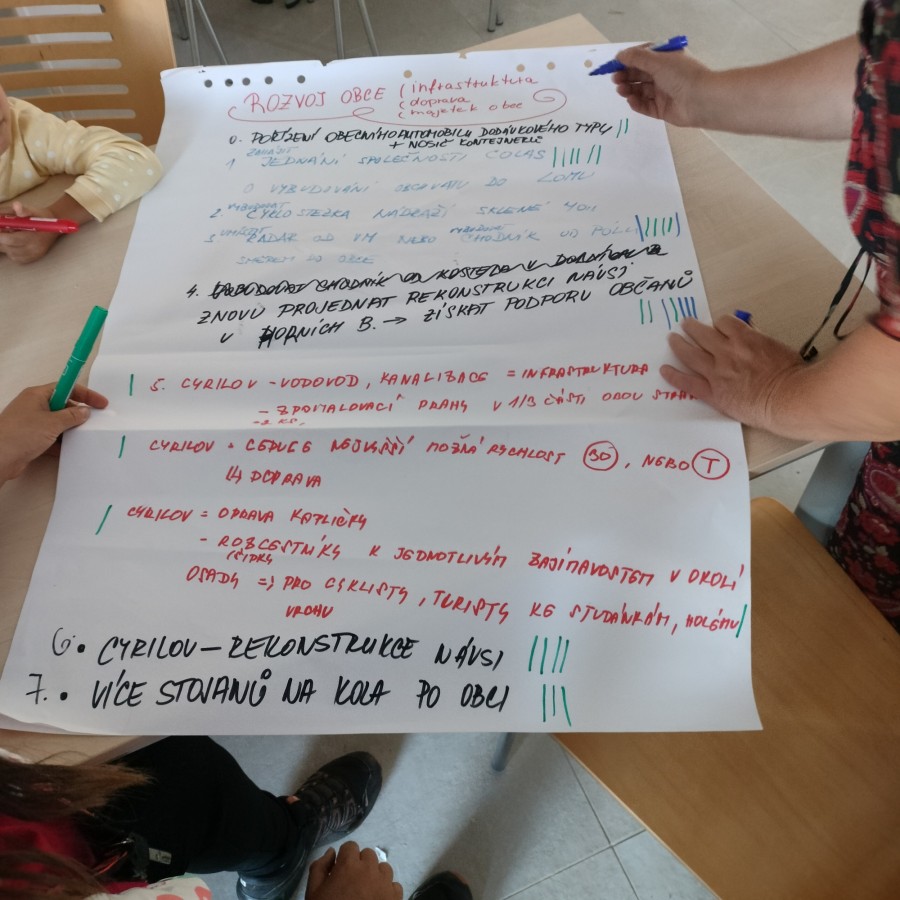 ROZVOJ OBCE (infrastruktura
(doprava
(majetek obec
0. POŘÍZENÍ OBECNÍHO AUTOMOBILU DODÁVKOVÉHO TYPU
+ NOSIČ KONTEJNERŮ
ZAHÁJIT
1 JEDNÁNÍ SPOLEČNOSTI COLAS
O VYBUDOVÁNÍ OBCHVATU DO LOMU
VYBUDOVAT
2. CYKLOSTEZKA NÁDRAŽÍ SKLENÉ
UMÍSTIT
3 RADAR OD VM NEBO CHODNÍK OD
SMĚREM DO OBCE
4. CHODNÍK OD KOSTELA V
ZNOVU PROJEDNAT REKONSTRUKCI NÁVSI
V HORNÍCH B. → ZÍSKAT PODPORU OBČANŮ
5. CYRILOV - VODOVOD, KANALIZACE = INFRASTRUKTURA
- ZPOMALOVACÍ PRAHY V 1/3 ČÁSTI OBOU STRAN
- 2 KS.
CYRILOV = CEDULE NEJVYŠŠÍ MOŽNÁ RYCHLOST 30, NEBO T
↳ DOPRAVA
CYRILOV = OPRAVA KAPLIČKY
- ROZCESTNÍKY K JEDNOTLIVÝM ZAJÍMAVOSTEM V OKOLÍ
OSADY => PRO CYKLISTY, TURISTY KE STUDÁNKÁM, HOLÉMU
VRCHU
6. CYRILOV – REKONSTRUKCE NÁVSI
7. VÍCE STOJANŮ NA KOLA PO OBCI